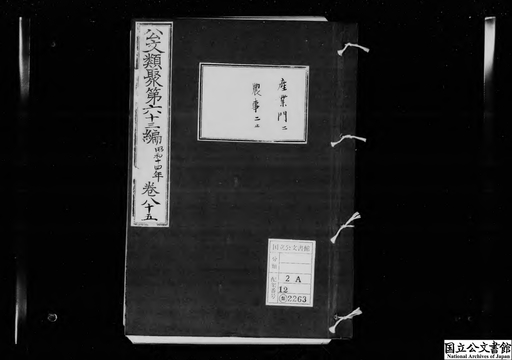 公文類聚第六十三編 昭和十四年 巻八十五
産業門二
農事二止
国立公文書館
分類
配架番号
2A
12
2263
国立公文書館
National Archives of Japan